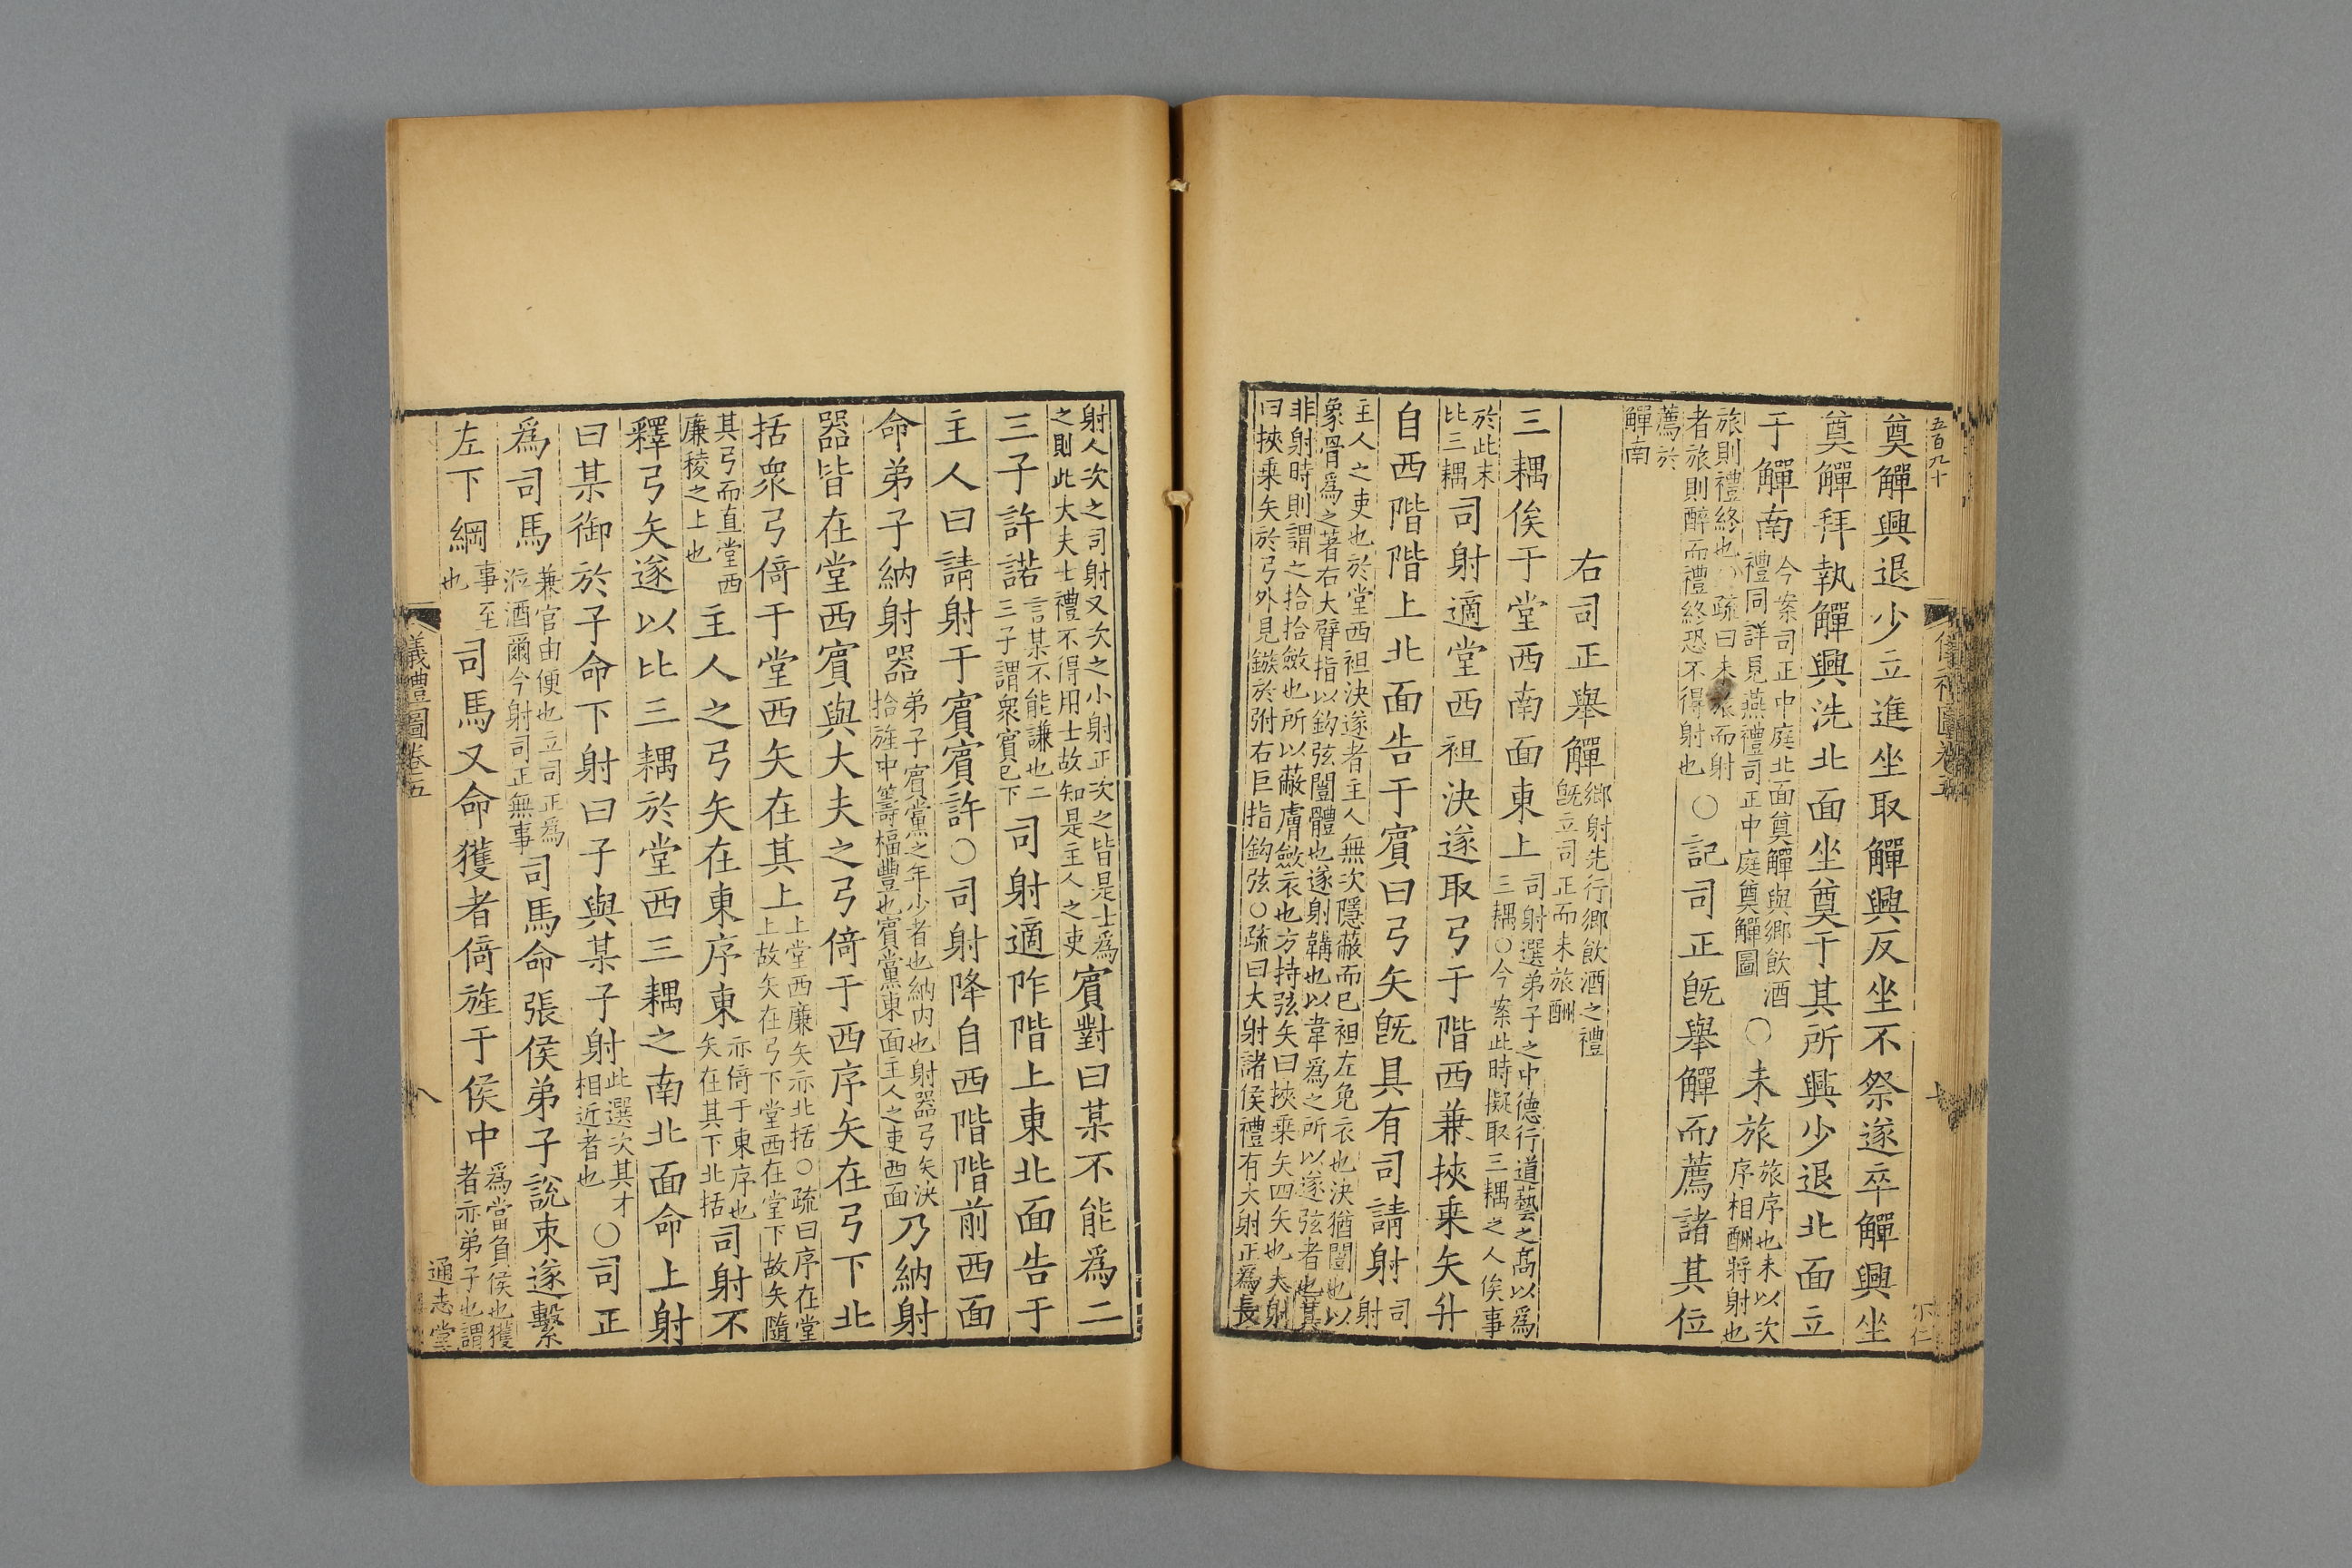 五百九十
儀禮圖卷五
七
奠觶興退少立進坐取觶興反坐不祭遂卒觶興坐
奠觶拜執觶興洗北面坐奠于其所興少退北面立
于觶南今案司正中庭北面奠觶與鄉飲酒禮同詳見燕禮司正中庭奠觶圖○未旅旅序也未以次序相酬將射也
旅則禮終也○疏曰未旅而射者旅則醉而禮終恐不得射也○記司正既舉觶而薦諸其位
薦於觶南
右司正舉觶鄉射先行鄉飲酒之禮既立司正而未旅酬
三耦俟于堂西南面東上司射選弟子之中德行道藝之高以爲三耦○今案此時擬取三耦之人俟事
於此未比三耦司射適堂西袒決遂取弓于階西兼挾乘矢升
自西階階上北面告于賓曰弓矢既具有司請射司射
主人之吏也於堂西袒決遂者主人無次隱蔽而已袒左免衣也決猶闓也以象骨爲之著右大擘指以鉤弦闓體也遂射韝也以韋爲之所以遂弦者也其
非射時則謂之拾拾斂也所以蔽膚斂衣也方持弦矢曰挾乘矢四矢也大射曰挾乘矢於弓外見鏃於弣右巨指鉤弦○疏曰大射諸侯禮有大射正爲長
射人次之司射又次之小射正次之皆是士爲之則此大夫士禮不得用士故知是主人之吏賓對曰某不能爲二
三子許諾言某不能謙也二三子謂衆賓已下司射適阼階上東北面告于
主人曰請射于賓賓許○司射降自西階階前西面
命弟子納射器弟子賓黨之年少者也納內也射器弓矢決拾旌中籌楅豐也賓黨東面主人之吏西面乃納射
器皆在堂西賓與大夫之弓倚于西序矢在弓下北
括衆弓倚于堂西矢在其上上堂西廉矢亦北括○疏曰序在堂上故矢在弓下堂西在堂下故矢隨
其弓而直堂西廉稜之上也主人之弓矢在東序東亦倚于東序也矢在其下北括司射不
釋弓矢遂以比三耦於堂西三耦之南北面命上射
曰某御於子命下射曰子與某子射此選次其才相近者也○司正
爲司馬兼官由便也立司正爲涖酒爾今射司正無事司馬命張侯弟子說束遂繫
左下綱事至也司馬又命獲者倚旌于侯中爲當負侯也獲者亦弟子也謂
儀禮圖卷五
八
通志堂